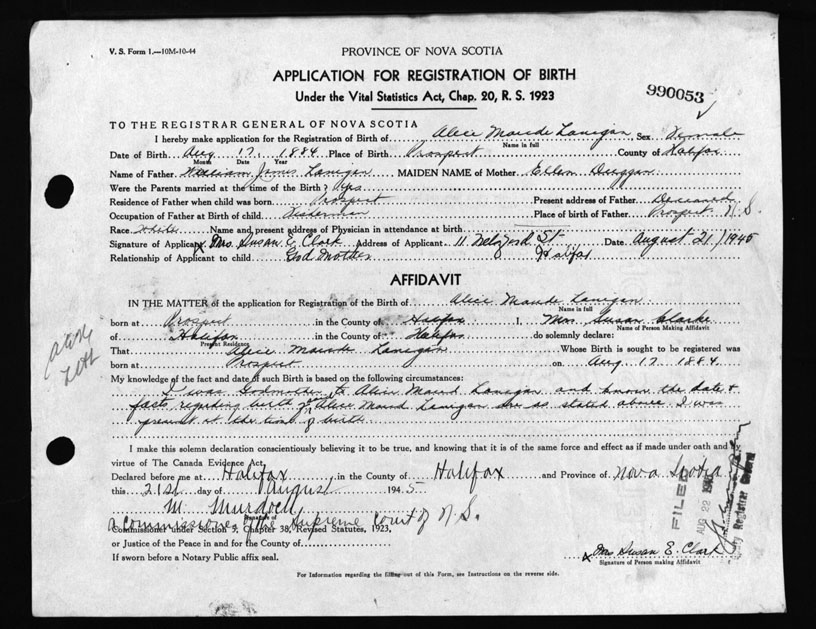 V. S. Form 1.—10M-10-44
PROVINCE OF NOVA SCOTIA
APPLICATION FOR REGISTRATION OF BIRTH
Under the Vital Statistics Act, Chap. 20, R. S. 1923
990053
TO THE REGISTRAR GENERAL OF NOVA SCOTIA
I hereby make application for the Registration of Birth of Alice Maude Lanigan, Sex Female
Name in full
Date of Birth Aug 17. 1884 Place of Birth Prospect County of Halifax
Month Date Year
Name of Father William James Lanigan MAIDEN NAME of Mother Ellen Duggan
Were the Parents married at the time of the Birth? Yes
Residence of Father when child was born Prospect Present address of Father Deceased
Occupation of Father at Birth of child Fisherman Place of birth of Father Prospect N.S.
Race White Name and present address of Physician in attendance at birth
Signature of Applicant x Mrs. Susan E. Clark Address of Applicant 11 St Date August 21/1945
Relationship of Applicant to child God Mother Halifax
AFFIDAVIT
IN THE MATTER of the application for Registration of the Birth of Alice Maude Lanigan
Name in full
born at Prospect in the County of Halifax I, Mrs Susan Clarke
Name of Person Making Affidavit
of Halifax in the County of Halifax do solemnly declare:
Present Residence
That Alice Maude Lanigan Whose Birth is sought to be registered was
born at Prospect on Aug. 17 1884.
My knowledge of the fact and date of such Birth is based on the following circumstances:
I was Godmother to Alice Maud Lanigan and know the date &
facts regarding birth of Alice Maud Lanigan are as stated above. I was
present at the time of birth
I make this solemn declaration conscientiously believing it to be true, and knowing that it is of the same force and effect as if made under oath and by
virtue of The Canada Evidence Act.
Declared before me at Halifax in the County of Halifax and Province of Nova Scotia
this 21st day of August 1945
M. Murdoch
Signature of
a Commissioner of the Supreme Court of N.S.
Commissioner under Section 9, Chapter 38, Revised Statutes, 1923,
or Justice of the Peace in and for the County of
If sworn before a Notary Public affix seal.
x Mrs Susan E. Clark
Signature of Person making Affidavit
For Information regarding the filling out of this Form, see Instructions on the reverse side.
FILED
AUG 22 1945
Deputy Registrar General